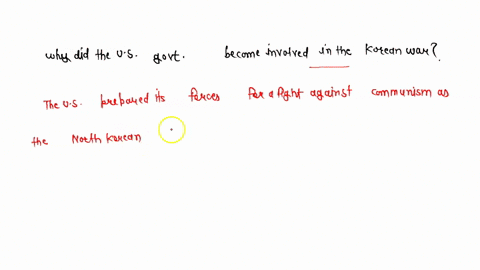 why did the U.S. govt. become involved in the Korean war?
The U.S. prepared its forces for a fight against communism as
the North Korean